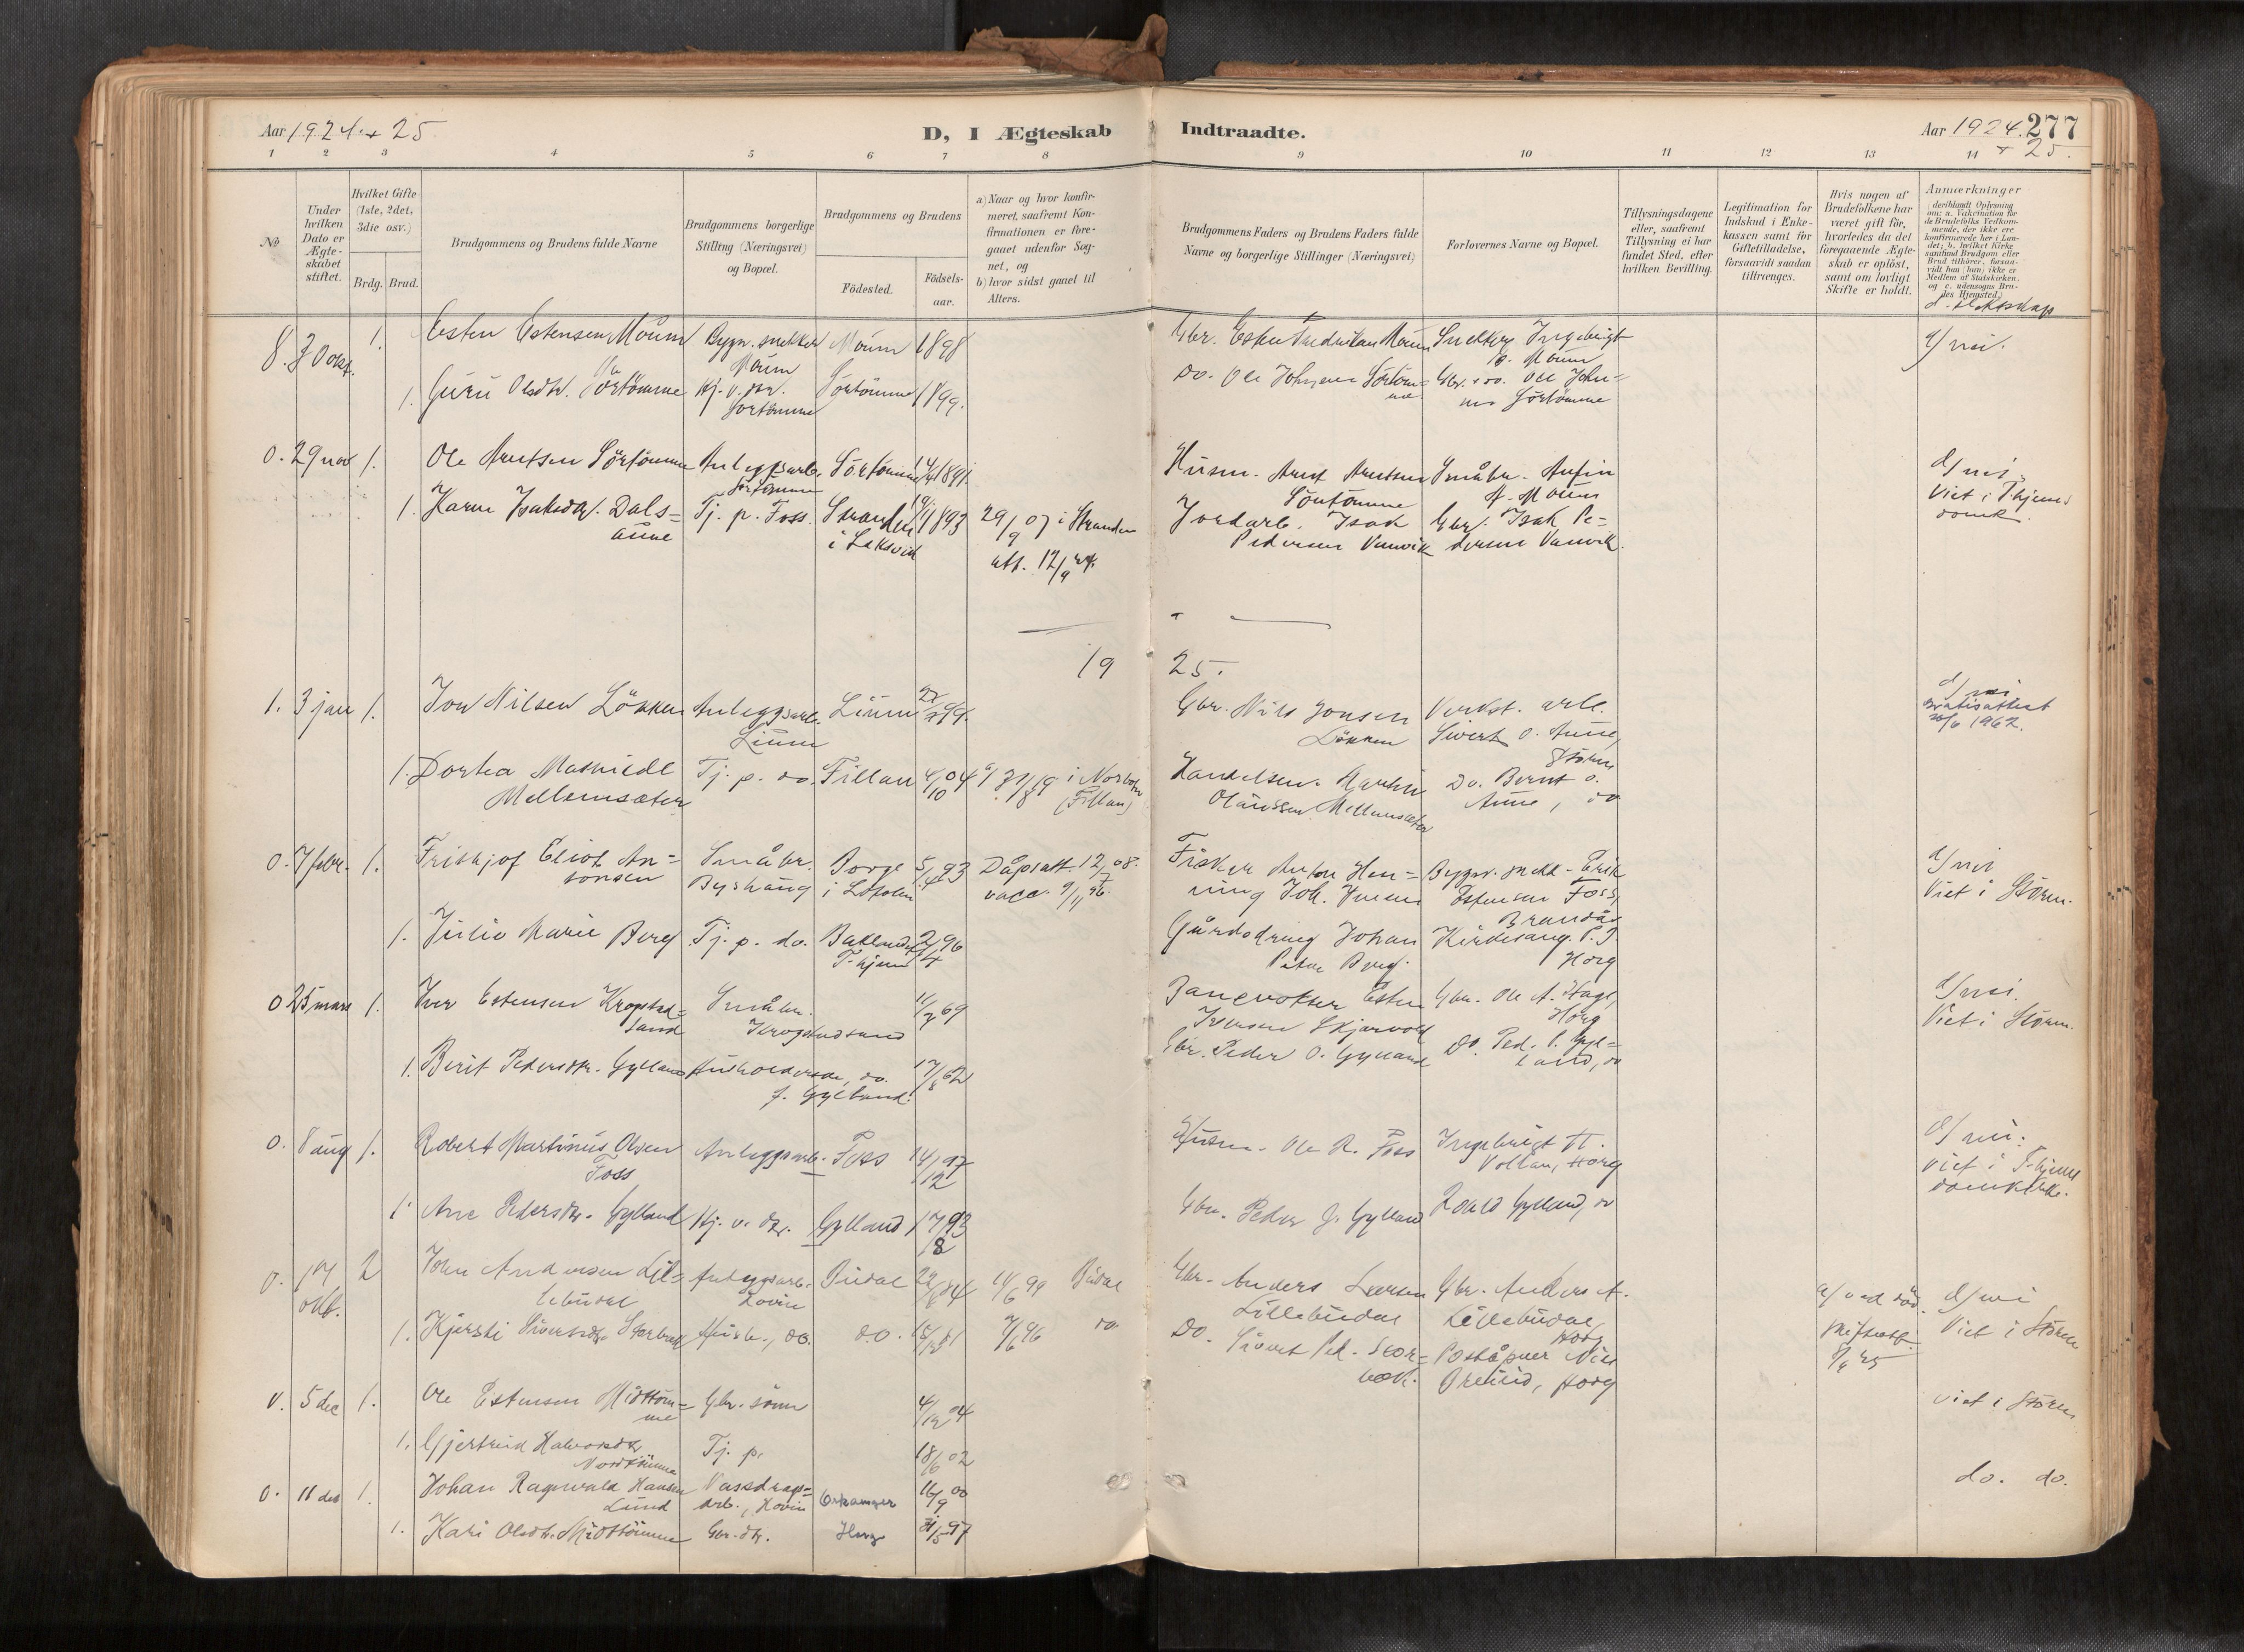 Aar 1924 + 25
D, I Ægteskab
Indtraadte.
Aar 1924. 277
+ 25.
1 2 3 4 5 6 7 8 9 10 11 12 13 14
No
Under hvilken Dato er Ægteskabet stiftet.
Hvilket Gifte (1ste, 2det, 3die osv.)
Brdg. Brud.
Brudgommens og Brudens fulde Navne
Brudgommens borgerlige Stilling (Næringsvei) og Bopæl.
Brudgommens og Brudens
Födested.
Födsels-aar.
a) Naar og hvor konfirmeret, saafremt Konfirmationen er foregaaet udenfor Sognet, og
b) hvor sidst gaaet til Alters.
Brudgommens Faders og Brudens Faders fulde Navne og borgerlige Stillinger (Næringsvei)
Forlovernes Navne og Bopæl.
Tillysningsdagene eller, saafremt Tillysning ei har fundet Sted, efter hvilken Bevilling.
Legitimation for Indskud i Enkekassen samt for Giftetilladelse, forsaavidt saadan tiltrænges.
Hvis nogen af Brudefolkene har været gift før, hvorledes da det foregaaende Ægteskab er opløst, samt om lovligt Skifte er holdt.
Anmærkninger (deriblandt Oplysning om: a. Vaksination for de Brudefolks Vedkommende, der ikke ere konfirmerede her i Landet; b. hvilket Kirkesamfund Brudgom eller Brud tilhører, forsaavidt han (hun) ikke er Medlem af Statskirken, og c. udensogns Brudes Hjemsted.)
d. slektskap
8. 30 okt. 1. Esten Estensen Moum Bygn. snekker Moum Moum 1898 Gbr. Esten Fredriksen Moum Snekker Ingebrigt Moum d/ nei.
1. Guru Olsdtr. Sörtömme Hj. v. Sörtömme Sörtömme 1899. Do. Ole Johnsen Sörtömme Gbr. Ole Johnsen Sörtömme
0. 29 nov 1. Ole Arntsen Sörtömme Anleggsarb. Sörtömme Sörtömme 1891 Husm. Arnt Arntsen Sörtömme Småbr. Anfin A. Moum d/ nei. Viet i T.hjems domk.
1. Karen Isaksdtr. Dalsaune Tj. p. Foss. Stranden i Leksvik 1893 29/9 07 i Stranden att. 12/9 24. Jordarb. Isak Pedersen Vanvik Gbr. Isak Pedersen Vanvik.
19 25.
1. 3 jan 1. Jon Nilsen Lökken Anleggsarb. Lium Lium 99. Gbr. Nils Jonsen Lökken Verkst. arb. Sivert O. Aune, Stören d/ nei Gratisattest 1962.
1. Dortea Mathilde Mellemsæter Tj. p. do. Fillan 4/10 04 i (Fillan) Handelsm. Martin Olaussen Mellemsæter Do. Bernt O. Aune, do
0. 7 febr. 1. Frithjof Eliot Antonsen Småbr. Byshaug Borge i Lofoten 5/4 93 Dåpsatt. 12/7 08. vacc. 9/11 96. Fisker Anton Henning Joh. Jensen Bygn. snekk. Erik Estensen Foss, d/ nei Viet i Stören.
1. Julie Marie Berg Tj. p. do. Baklandet T-hjem 2/4 96 Gårdsdreng Johan Peter Berg. Kirkesang. P. J. Horg
0 25 mars 1. Iver Estensen Krogstadsand Småbr. Krogstadsand 69 Banevokter Esten Iversen Skjervold Gbr. Ole A. Hage, Horg d/ nei. Viet i Stören.
1. Berit Pedersdtr. Gylland Husholderske, do. f. Gylland. 17/8 62 Gbr. Peder O. Gylland Do. Ped. P. Gylland, do
0. 8 aug 1. Robert Martinus Olsen Foss Anleggsarb. Foss 14/12 97 Husm. Ole R. Foss Ingebrigt H. Vollan, Horg d/ nei. Viet i T-hjems domkirke.
1. Ane Pedersdtr. Gylland Hj. v. do. Gylland 17/8 93 Gbr. Peder J. Gylland Gylland, do
0. 17 okt. 2 John Andersen Lillebudal Anleggsarb. Hovin Budal 84 14/6 99 Budal Gbr. Anders Larsen Lillebudal Gbr. Anders A. Lillebudal, Horg a/ ved död. skifteatt. d/ nei Viet i Stören
1. Kjersti Siversdtr. Storbæk Hush., do. do. 81 7/6 96 do Do. Sivert Ped. Storbæk. Poståpner Nils Horg
0. 5 dec 1. Ole Estensen Midttömme Gbr. sönn 4/12 04 Viet i Stören
1. Gjertrud Halvorsdtr Nordtömme Tj. p. 18/6 02
0. 11 des 1. Johan Ragnvald Hansen Lund Vassdragsarb., Hovin Orkanger 16/9 00 do. do.
1. Kari Olsdtr. Midttömme Gbr. dtr. Horg 31/5 97